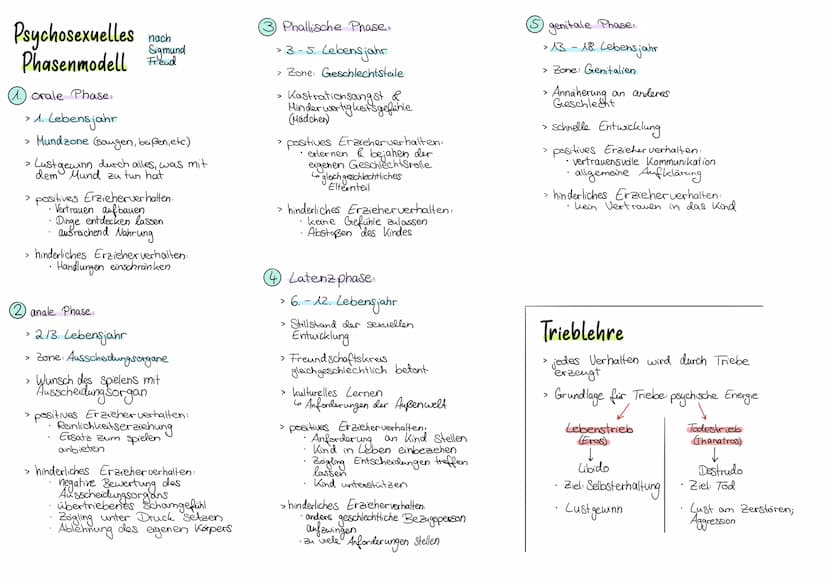 Psychosexuelles
Phasenmodell
nach
Sigmund
Freud
1. orale Phase:
> 1. Lebensjahr
> Mundzone (saugen, beißen, etc)
> Lustgewinn durch alles, was mit
dem Mund zu tun hat
> positives Erzieherverhalten:
· Vertrauen aufbauen
· Dinge entdecken lassen
· ausreichend Nahrung
> hinderliches Erzieherverhalten:
· Handlungen einschränken
2 anale Phase:
> 2./3. Lebensjahr
> Zone: Ausscheidungsorgane
> Wunsch des spielens mit
Ausscheidungsorgan
> positives Erzieherverhalten:
· Reinlichkeitserziehung
· Ersatz zum spielen
anbieten
> hinderliches Erzieherverhalten:
· Negative Bewertung des
Ausscheidungsorgans
· übertriebenes Schamgefühl
· Zögling unter Druck setzen
· Ablehnung des eigenen Körpers
3 Phallische Phase:
> 3.-5. Lebensjahr
> Zone: Geschlechtsteile
> Kastrationsangst &
Minderwertigkeitsgefühle
(Mädchen)
> positives Erzieherverhalten:
· erlernen & bejahen der
eigenen Geschlechtsrolle
↳ gleichgeschlechtliches
Elternteil
> hinderliches Erzieherverhalten:
· keine Gefühle zulassen
· Abstoßen des Kindes
4 Latenzphase:
> 6. - 12. Lebensjahr
> Stillstand der sexuellen
Entwicklung
> Freundschaftskreis
gleichgeschlechtlich betont
> kulturelles Lernen
↳ Anforderungen der Außenwelt
> positives Erzieherverhalten:
· Anforderung an Kind stellen
· Kind in Leben einbeziehen
· Zögling Entscheidungen treffen
lassen
· Kind unterstützen
> hinderliches Erzieherverhalten:
· anders geschlechtliche Bezugsperson
aufzwingen
· zu viele Anforderungen stellen
5 genitale Phase:
> 13. - 18. Lebensjahr
> Zone: Genitalien
> Annäherung an anderes
Geschlecht
> schnelle Entwicklung
> positives Erzieherverhalten:
· vertrauensvolle Kommunikation
· allgemeine Aufklärung
> hinderliches Erzieherverhalten:
· kein Vertrauen in das Kind
Trieblehre
> jedes Verhalten wird durch Triebe
erzeugt
> Grundlage für Triebe: psychische Energie
Lebenstrieb
(Eros)
↓
Libido
· Ziel: Selbsterhaltung
· Lustgewinn
Todestrieb
(Thanatros)
↓
Destrudo
· Ziel: Tod
· Lust am Zerstören;
Aggression